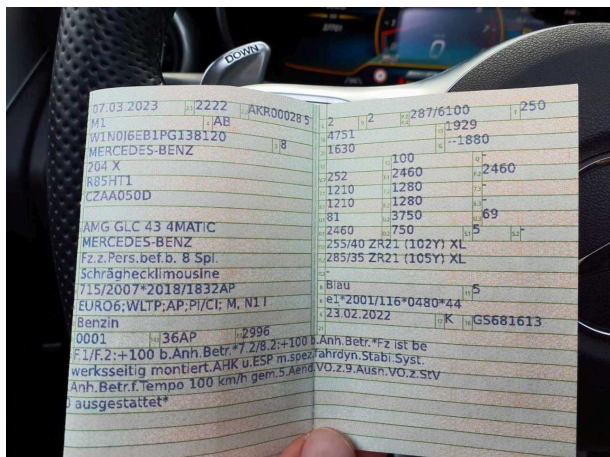 DOWN
07.03.2023 2222 AKR00028 5
M1 AB
W1N0J6EB1PG138120 8
MERCEDES-BENZ
204 X
R85HT1
CZAA050D
AMG GLC 43 4MATIC
MERCEDES-BENZ
Fz.z.Pers.bef.b. 8 Spl.
Schräghecklimousine
715/2007*2018/1832AP
EURO6;WLTP;AP;PI/CI; M, N1 I
Benzin
0001 36AP 2996
F.1/F.2:+100 b.Anh.Betr.*7.2/8.2:+100 b.Anh.Betr.*Fz ist be
werksseitig montiert.AHK u.ESP m.spez.fahrdyn.Stabi.Syst.
Anh.Betr.f.Tempo 100 km/h gem.5.Aend.VO.z.9.Ausn.VO.z.StV
ausgestattet*
2 2 287/6100 250
4751 1929
1630 --1880
100 -
252 2460 2460
1210 1280 -
1210 1280 -
81 3750 69
2460 750 5 -
255/40 ZR21 (102Y) XL
285/35 ZR21 (105Y) XL
-
Blau 5
e1*2001/116*0480*44
23.02.2022 K GS681613